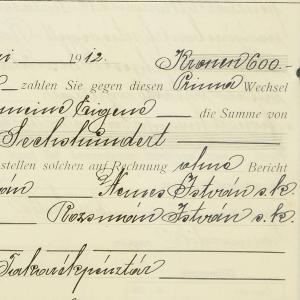 ri 1912. Kronen 600.-
zahlen Sie gegen diesen Prima Wechsel
meine Eigene die Summe von
Sechshundert
stellen solchen auf Rechnung ohne Bericht
án Nemes István s.k.
Rozsmán István s.k.
Takarékpénztár